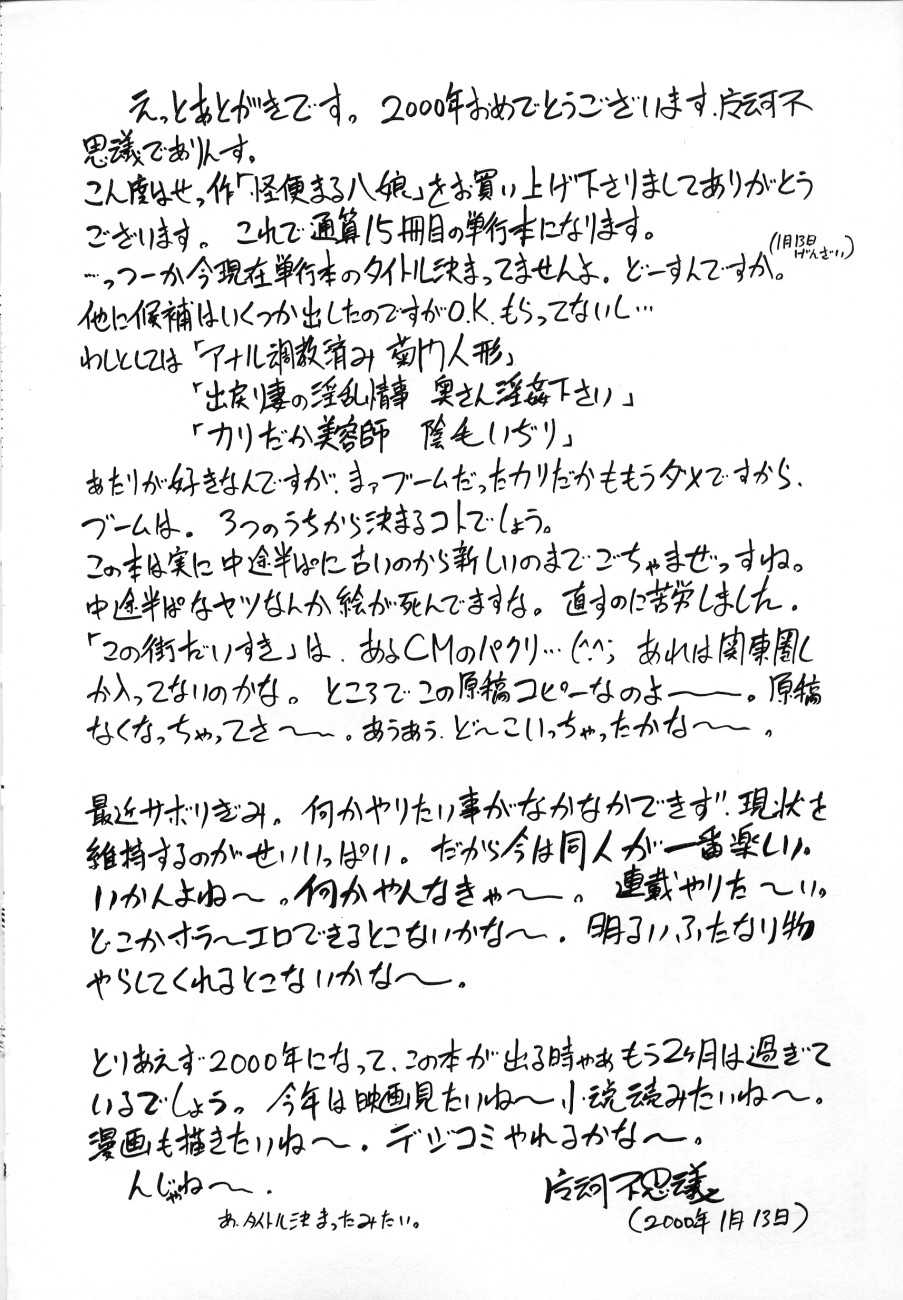 えっとあとがきです。2000年おめでとうございます、片珂不
思議でありんす。
こん度はせっ作「怪便まる八娘」をお買い上げ下さりましてありがとう
ございます。これで通算15冊目の単行本になります。
…っつーか今現在単行本のタイトル決まってませんよ。どーすんですか。(1月13日げんざい)
他に候補はいくつか出したのですがO.K.もらってないし…
わしとしては「アナル調教済み 菊門人形」
「出戻り妻の淫乱情事 奥さん淫姦下さい」
「カリだか美容師 陰毛いぢり」
あたりが好きなんですが、まァブームだったカリだかももうダメですから、
ブームは。3つのうちから決まるコトでしょう。
この本は実に中途半ぱに古いのから新しいのまでごちゃまぜっすね。
中途半ぱなヤツなんか絵が死んでますな。直すのに苦労しました。
「この街だいすき」は、あるCMのパクリ…(^^; あれは関東圏し
か入ってないのかな。ところでこの原稿コピーなのよ〜〜。原稿
なくなっちゃってさ〜〜。あうあう、ど〜こいっちゃったかな〜〜。
最近サボリぎみ。何かやりたい事がなかなかできず、現状を
維持するのがせいいっぱい。だから今は同人が一番楽しい。
いかんよね〜。何かやんなきゃ〜〜。連載やりた〜い。
どこかホラ〜エロできるとこないかな〜。明るいふたなり物
やらしてくれるとこないかな〜〜。
とりあえず2000年になって、この本が出る時ゃあもう2ヶ月は過ぎて
いるでしょう。今年は映画見たいね〜小説読みたいね〜。
漫画も描きたいね〜。デジコミやれるかな〜。
んじゃね〜〜。
片珂不思議
あ、タイトル決まったみたい。
(2000年1月13日)